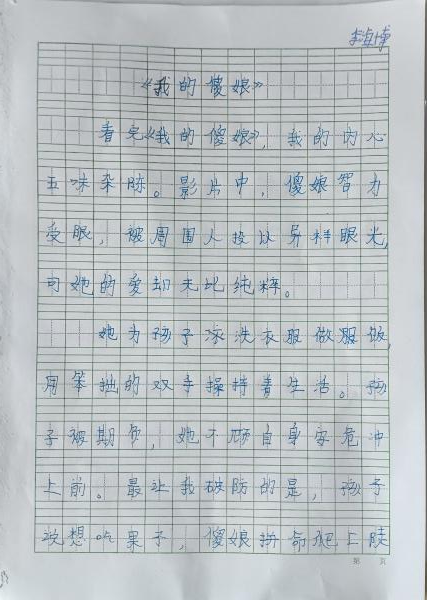 李自博
《我的傻娘》
看完《我的傻娘》，我的内心
五味杂陈。影片中，傻娘智力
受眼，被周围人投以异样眼光，
可她的爱却未比纯粹。
她为孩子洗衣服做服饭，
用笨拙的双手操持着生活。孩
子被期负，她不顾自身安危冲
上前。最让我破防的是，孩子
说想吃果子，傻娘拼命爬上陡
第 页